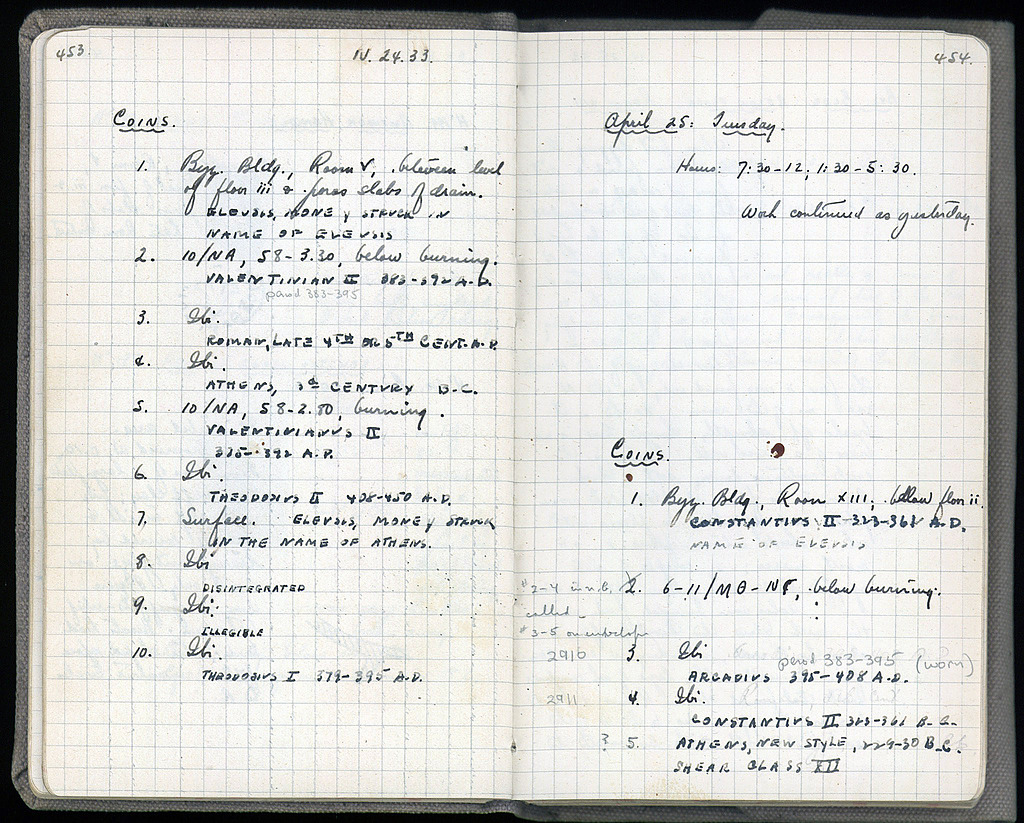 453
IV. 24.33.
COINS.
1. Byz. Bldg., Room V, between level
of floor iii & poros slabs of drain.
ELEUSIS, MONEY STRUCK IN
NAME OF ELEUSIS
2. 10/NA, 58-3.30, below burning.
VALENTINIAN II 383-392 A.D.
period 383-395
3. Ibi.
ROMAN, LATE 4TH OR 5TH CENT. A.D.
4. Ibi.
ATHENS, 3d CENTURY B.C.
5. 10/NA, 58-2.80, burning.
VALENTINIANUS II
375-392 A.D.
6. Ibi.
THEODOSIUS II 408-450 A.D.
7. Surface. ELEUSIS, MONEY STRUCK
IN THE NAME OF ATHENS.
8. Ibi
DISINTEGRATED
9. Ibi.
ILLEGIBLE
10. Ibi.
THEODOSIUS I 379-395 A.D.
454.
April 25: Tuesday.
Hours: 7:30-12; 1:30-5:30.
Work continued as yesterday.
COINS.
1. Byz. Bldg., Room XIII, below floor ii.
CONSTANTIUS II 323-361 A.D.
NAME OF ELEUSIS
#2-4 in n.b. 2. 6-11/ΜΘ-ΝΓ, below burning.
called
#3-5 on envelop
2910 3. Ibi
period 383-395 (worn)
ARCADIUS 395-408 A.D.
2911 4. Ibi.
CONSTANTIUS II 323-361 B.C.
? 5. ATHENS, NEW STYLE, 229-30 B.C.
SHEAR CLASS XII